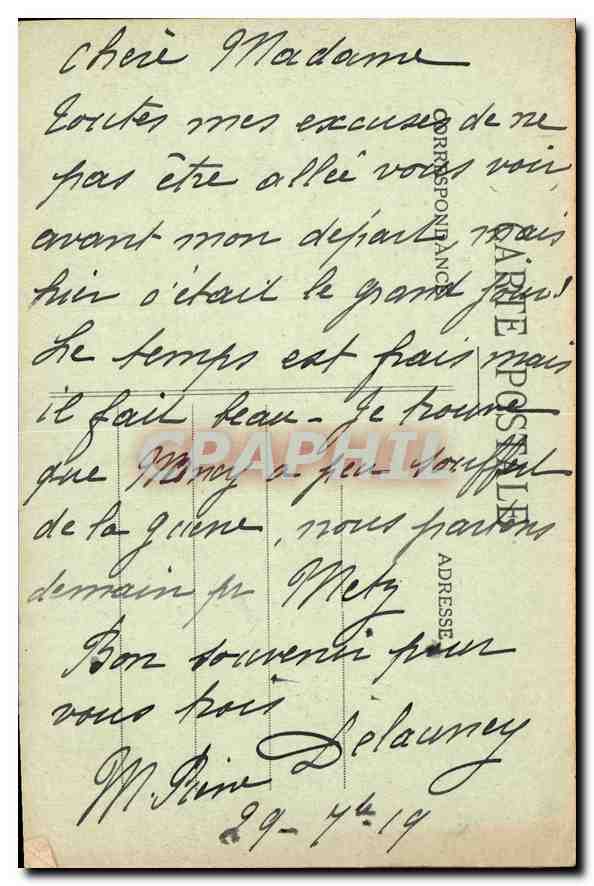 Chère Madame
toutes mes excuses de ne
pas être allée vous voir
avant mon départ, mais
hier c'était le grand jour!
Le temps est frais mais
il fait beau - Je trouve
que Nancy a peu souffert
de la guerre, nous partons
demain pr Metz
Bon souvenir pour
vous trois
M. Delaunay
29 - 7bre 19
CARTE POSTALE
CORRESPONDANCE
ADRESSE
CPAPHIL